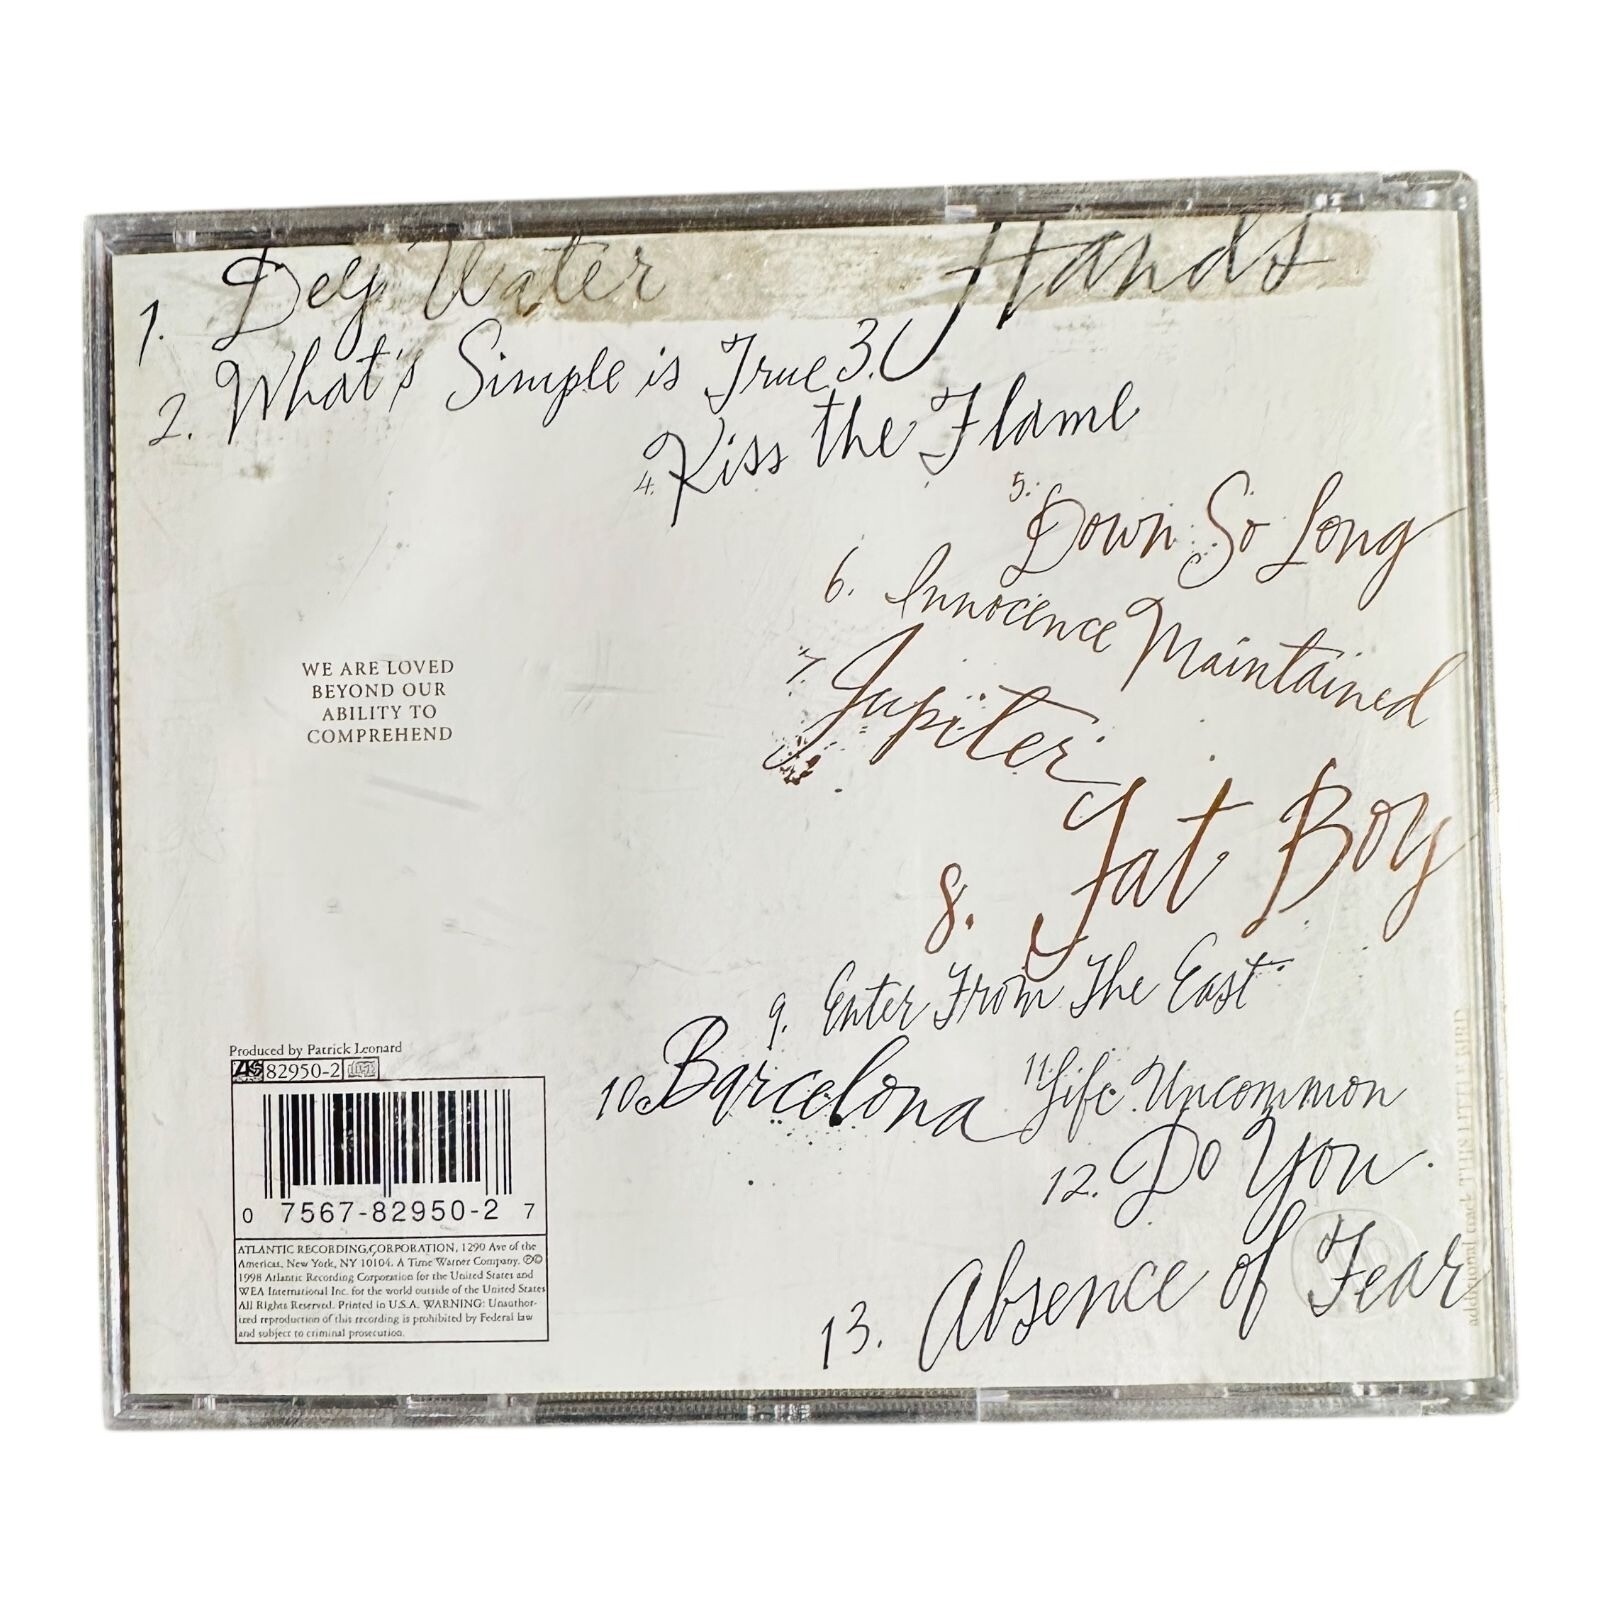 1. Deep Water
2. What's Simple is True
3. Hands
4. Kiss the Flame
5. Down So Long
6. Innocence Maintained
7. Jupiter
8. Fat Boy
9. Enter From The East
10. Barcelona
11. Life Uncommon
12. Do You
13. Absence of Fear
WE ARE LOVED
BEYOND OUR
ABILITY TO
COMPREHEND
Produced by Patrick Leonard
82950-2
0 7567-82950-2 7
ATLANTIC RECORDING CORPORATION, 1290 Ave of the
Americas, New York, NY 10104. A Time Warner Company. ℗©
1998 Atlantic Recording Corporation for the United States and
WEA International Inc. for the world outside of the United States
All Rights Reserved. Printed in U.S.A. WARNING: Unauthor-
ized reproduction of this recording is prohibited by Federal law
and subject to criminal prosecution.
additional track THIS LITTLE BIRD